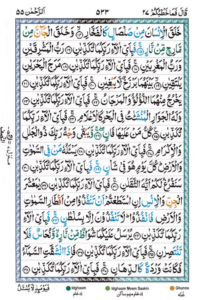 قَالَ فَمَا خَطْبُكُمْ ٢٧
٥٣٣
اَلرَّحْمٰن ٥٥
خَلَقَ الْاِنْسَانَ مِنْ صَلْصَالٍ كَالْفَخَّارِ وَخَلَقَ الْجَآنَّ مِنْ
مَّارِجٍ مِّنْ نَّارٍ فَبِاَيِّ اٰلَآءِ رَبِّكُمَا تُكَذِّبٰنِ رَبُّ الْمَشْرِقَيْنِ
وَرَبُّ الْمَغْرِبَيْنِ فَبِاَيِّ اٰلَآءِ رَبِّكُمَا تُكَذِّبٰنِ مَرَجَ الْبَحْرَيْنِ
يَلْتَقِيٰنِ بَيْنَهُمَا بَرْزَخٌ لَّا يَبْغِيٰنِ فَبِاَيِّ اٰلَآءِ رَبِّكُمَا تُكَذِّبٰنِ
يَخْرُجُ مِنْهُمَا اللُّؤْلُؤُ وَالْمَرْجَانُ فَبِاَيِّ اٰلَآءِ رَبِّكُمَا تُكَذِّبٰنِ
وَلَهُ الْجَوَارِ الْمُنْشَئٰتُ فِي الْبَحْرِ كَالْاَعْلَامِ فَبِاَيِّ اٰلَآءِ رَبِّكُمَا
تُكَذِّبٰنِ كُلُّ مَنْ عَلَيْهَا فَانٍ وَّيَبْقٰى وَجْهُ رَبِّكَ ذُو الْجَلٰلِ
وَالْاِكْرَامِ فَبِاَيِّ اٰلَآءِ رَبِّكُمَا تُكَذِّبٰنِ يَسْئَلُهٗ مَنْ فِي السَّمٰوٰتِ
وَالْاَرْضِ كُلَّ يَوْمٍ هُوَ فِيْ شَاْنٍ فَبِاَيِّ اٰلَآءِ رَبِّكُمَا تُكَذِّبٰنِ
سَنَفْرُغُ لَكُمْ اَيُّهَ الثَّقَلٰنِ فَبِاَيِّ اٰلَآءِ رَبِّكُمَا تُكَذِّبٰنِ يٰمَعْشَرَ
الْجِنِّ وَالْاِنْسِ اِنِ اسْتَطَعْتُمْ اَنْ تَنْفُذُوْا مِنْ اَقْطَارِ السَّمٰوٰتِ
وَالْاَرْضِ فَانْفُذُوْا لَا تَنْفُذُوْنَ اِلَّا بِسُلْطٰنٍ فَبِاَيِّ اٰلَآءِ
رَبِّكُمَا تُكَذِّبٰنِ يُرْسَلُ عَلَيْكُمَا شُوَاظٌ مِّنْ نَّارٍ وَّنُحَاسٌ فَلَا
تَنْتَصِرٰنِ فَبِاَيِّ اٰلَآءِ رَبِّكُمَا تُكَذِّبٰنِ فَاِذَا انْشَقَّتِ السَّمَآءُ
فَكَانَتْ وَرْدَةً كَالدِّهَانِ فَبِاَيِّ اٰلَآءِ رَبِّكُمَا تُكَذِّبٰنِ
Idghaam
Idghaam Meem Saakin
Ghunna